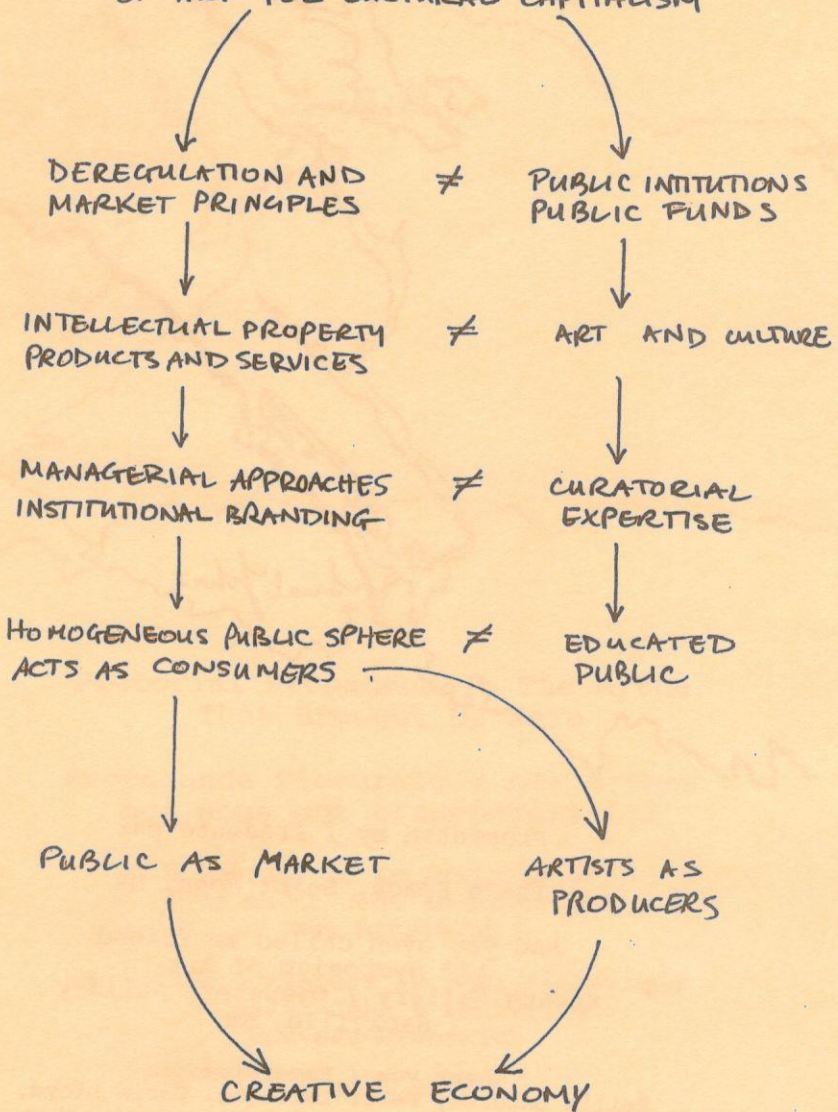 CULTURAL CAPITALISM
DEREGULATION AND
MARKET PRINCIPLES
≠
PUBLIC INTITUTIONS
PUBLIC FUNDS
INTELLECTUAL PROPERTY
PRODUCTS AND SERVICES
≠
ART AND CULTURE
MANAGERIAL APPROACHES
INSTITUTIONAL BRANDING
≠
CURATORIAL
EXPERTISE
HOMOGENEOUS PUBLIC SPHERE
ACTS AS CONSUMERS
≠
EDUCATED
PUBLIC
PUBLIC AS MARKET
ARTISTS AS
PRODUCERS
CREATIVE ECONOMY